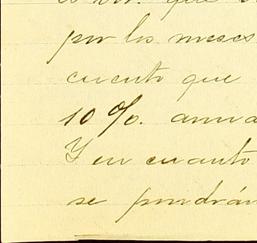 que
por los meses
cuento que
10%. anua
Y en cuanto
se pondrán